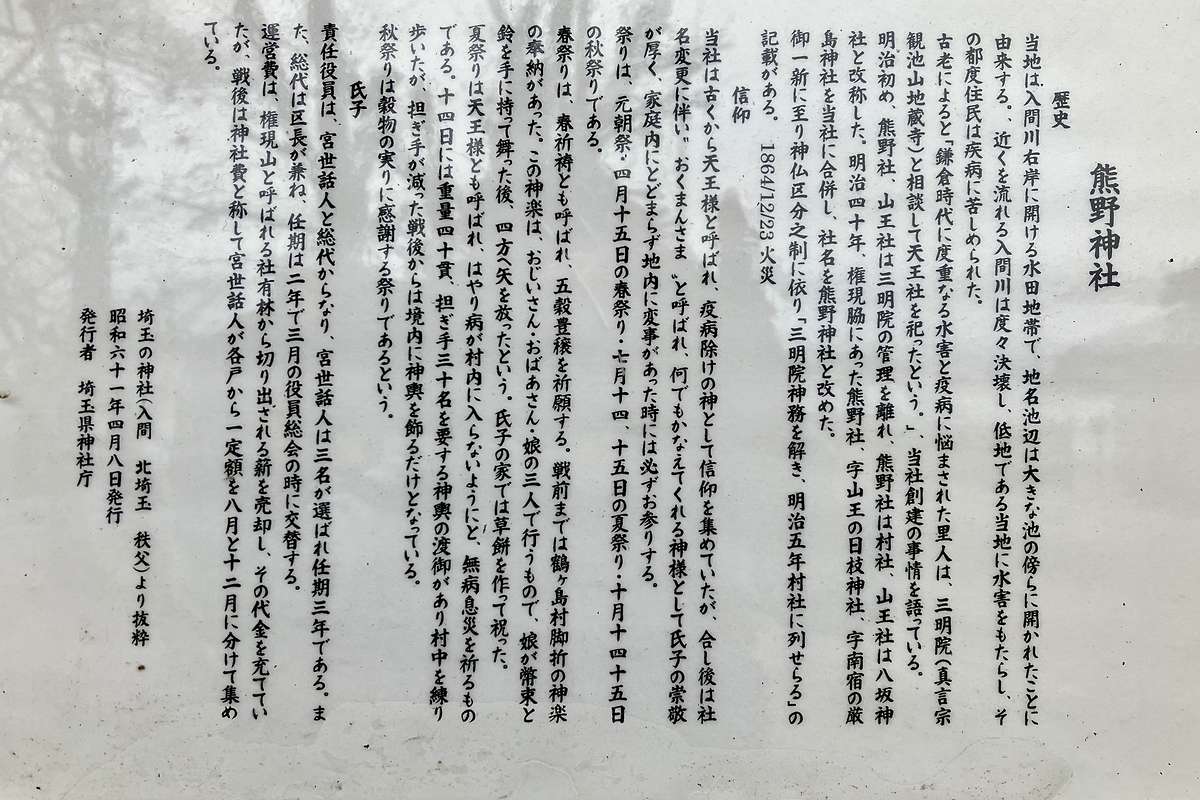 熊野神社
歴史
当地は、入間川右岸に開ける水田地帯で、地名池辺は大きな池の傍らに開かれたことに
由来する。近くを流れる入間川は度々決壊し、低地である当地に水害をもたらし、そ
の都度住民は疾病に苦しめられた。
古老によると「鎌倉時代に度重なる水害と疫病に悩まされた里人は、三明院(真言宗
観池山地蔵寺)と相談して天王社を祀ったという。」、当社創建の事情を語っている。
明治初め、熊野社、山王社は三明院の管理を離れ、熊野社は村社、山王社は八坂神
社と改称した。明治四十年、権現脇にあった熊野社、字山王の日枝神社、字南宿の厳
島神社を当社に合併し、社名を熊野神社と改めた。
御一新に至り神仏区分之制に依り「三明院神務を解き、明治五年村社に列せらる」の
記載がある。 1864/12/23 火災
信仰
当社は古くから天王様と呼ばれ、疫病除けの神として信仰を集めていたが、合し後は社
名変更に伴い〝おくまんさま〟と呼ばれ、何でもかなえてくれる神様として氏子の崇敬
が厚く、家庭内にとどまらず地内に変事があった時には必ずお参りする。
祭りは、元朝祭・四月十五日の春祭り・七月十四、十五日の夏祭り・十月十四十五日
の秋祭りである。
春祭りは、春祈祷とも呼ばれ、五穀豊穣を祈願する。戦前までは鶴ヶ島村脚折の神楽
の奉納があった。この神楽は、おじいさん・おばあさん・娘の三人で行うもので、娘が幣束と
鈴を手に持って舞った後、四方へ矢を放ったという。氏子の家では草餅を作って祝った。
夏祭りは天王様とも呼ばれ、はやり病が村内に入らないようにと、無病息災を祈るもの
である。十四日には重量四十貫、担ぎ手三十名を要する神輿の渡御があり村中を練り
歩いたが、担ぎ手が減った戦後からは境内に神輿を飾るだけとなっている。
秋祭りは穀物の実りに感謝する祭りであるという。
氏子
責任役員は、宮世話人と総代からなり、宮世話人は三名が選ばれ任期三年である。ま
た、総代は区長が兼ね、任期は二年で三月の役員総会の時に交替する。
運営費は、権現山と呼ばれる社有林から切り出される薪を売却し、その代金を充ててい
たが、戦後は神社費と称して宮世話人が各戸から一定額を八月と十二月に分けて集め
ている。
埼玉の神社(入間 北埼玉 秩父)より抜粋
昭和六十一年四月八日発行
発行者 埼玉県神社庁